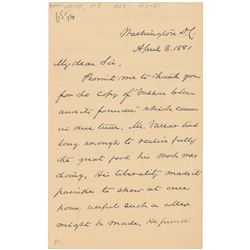 Washington DC
April 3. 1881
My dear Sir.
Permit me to thank you
for the copy of "Vassar College
and its founder" which came
in due time. Mr. Vassar lived
long enough to realize fully
the great good his work was
doing. His liberality made it
possible to show at once
how useful such a college
might be made. He proved